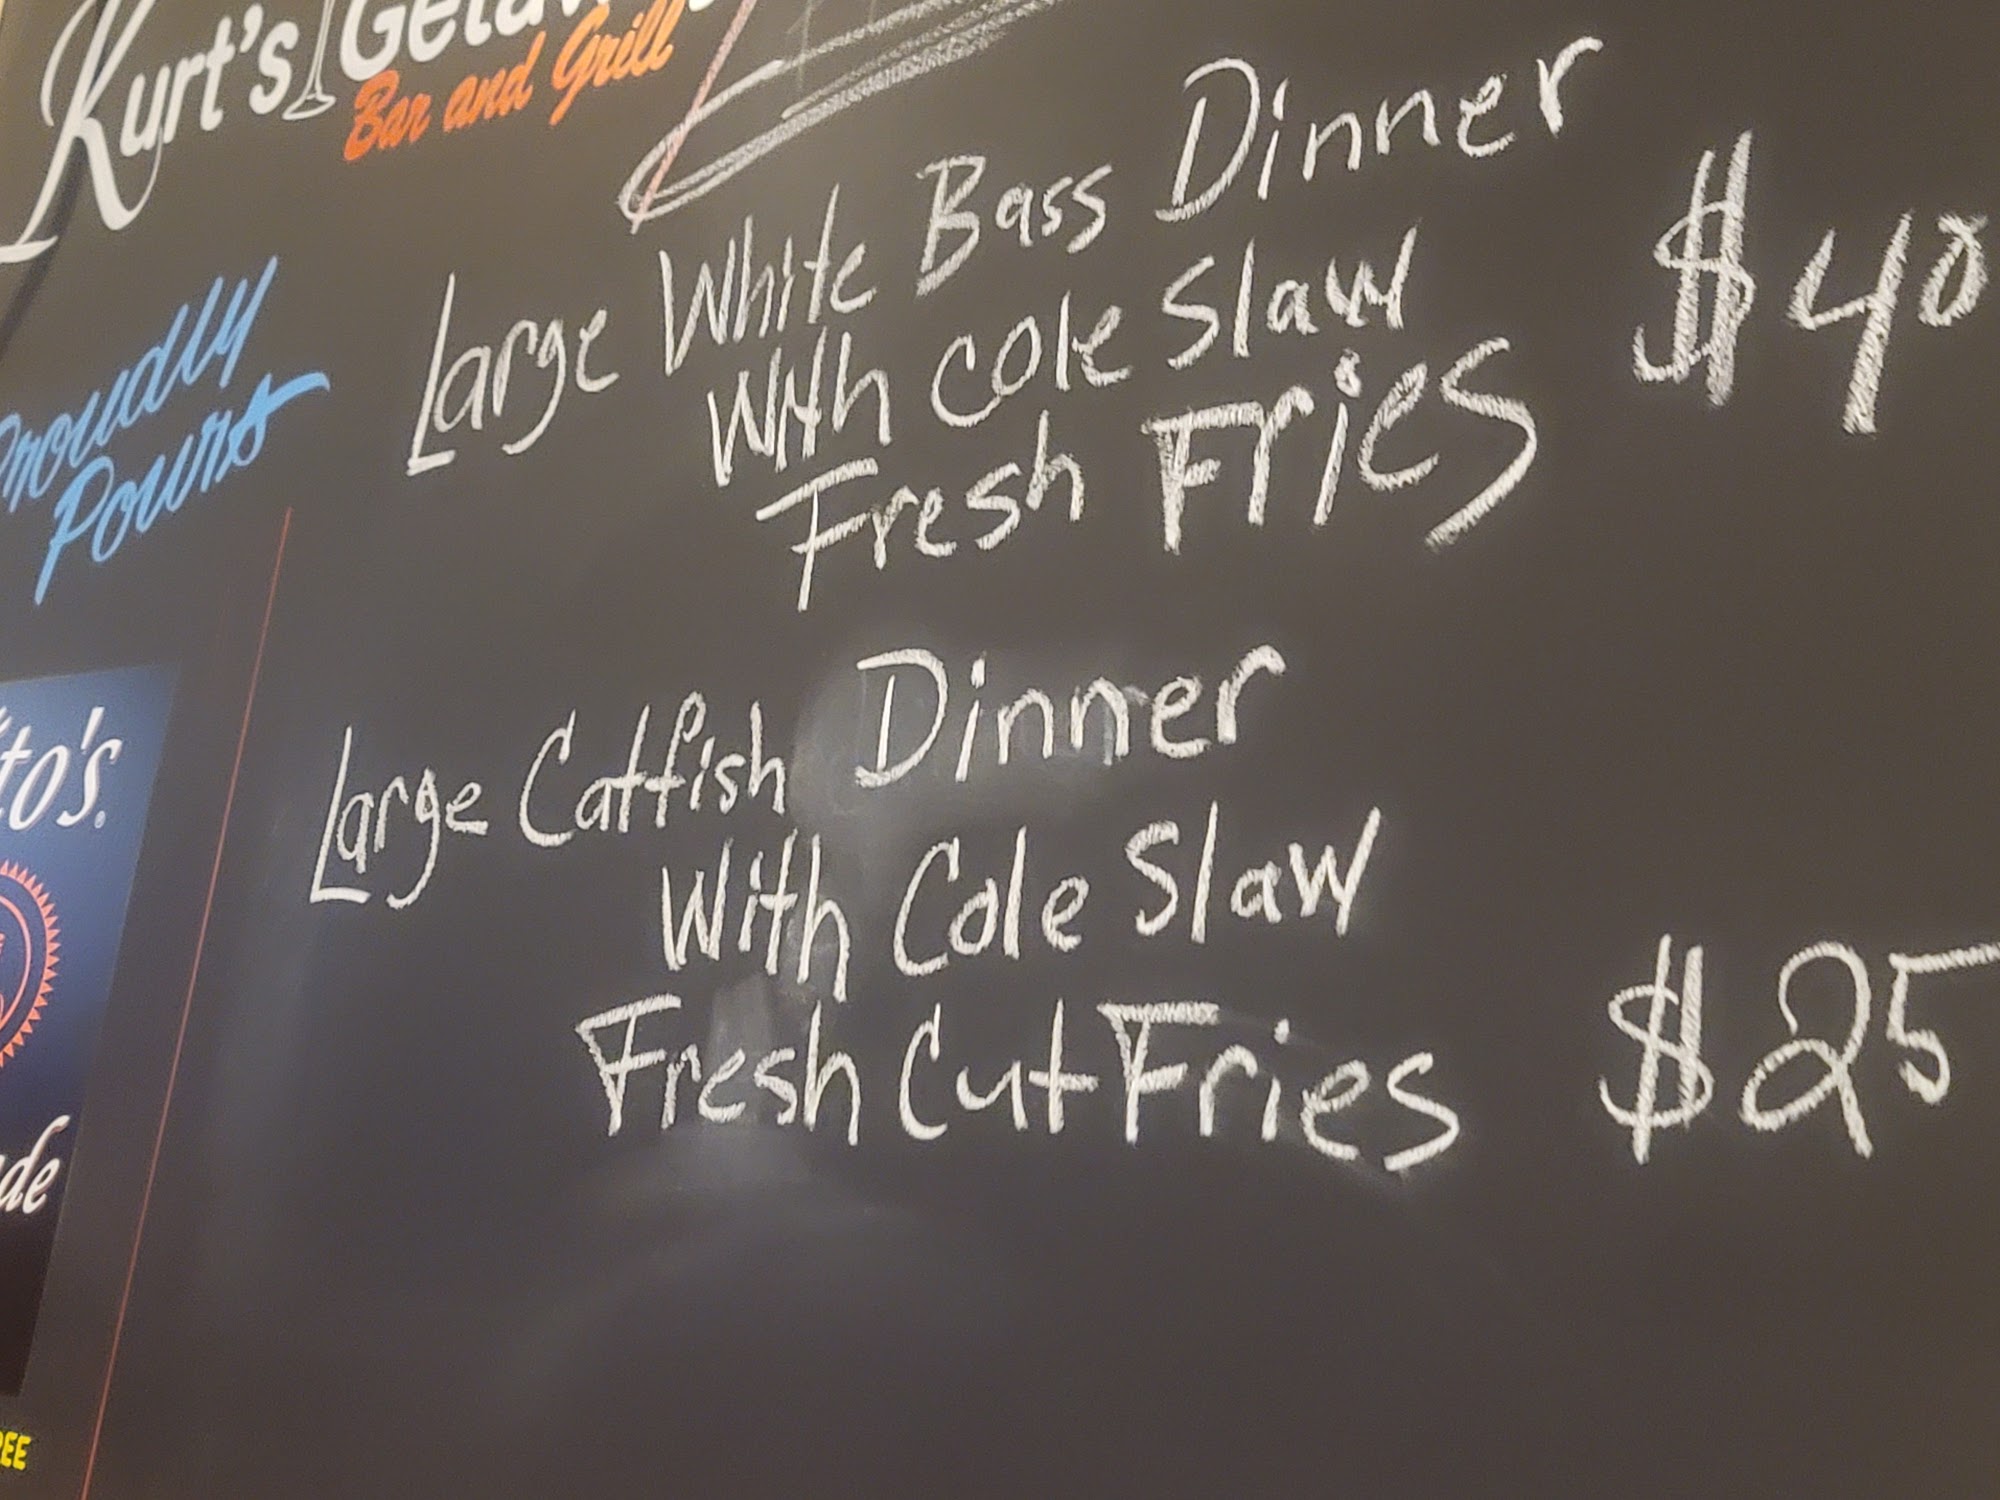 Kurt's Getaw
Bar and Grill
Proudly
Pours
Large White Bass Dinner
With Cole Slaw
Fresh Fries
$40
Large Catfish Dinner
With Cole Slaw
Fresh Cut Fries
$25
to's
de
REE